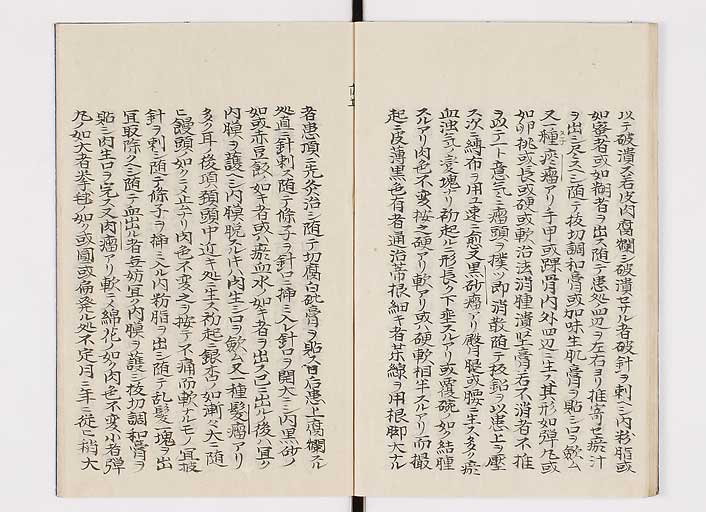 以テ破潰ス若皮肉腐爛シ破潰セサル者破針ヲ刺シ内粉脂或
如蜜者或如糊者ヲ出ス随テ患処四辺ヲ左右ヨリ推寄セ瘀汁
ヲ出シ尽スシ随テ枝切調和膏或加味生肌膏ヲ貼シ口ヲ斂ム
又一種瘀瘤アリ手甲或踝骨内外四辺ニ生ス其形如弾丸或
如卵桃或長或硬或軟治法消腫潰堅膏若不消者不推
ヲ以テ一下意気ニ瘤頭ヲ撲ツ即消散随テ板鉛ヲ以患上ヲ壓
ス次ニ縛布ヲ用ユ速ニ愈又黒砂瘤アリ臀腿或腰ニ生ス多ク瘀
血濁気凝塊リ初起ル二形長ク下垂スルアリ或覆碗ノ如ク結腫
スルアリ肉色不変按之硬アリ軟アリ或ハ硬軟相半スルアリ而撮
起シ皮薄黒色有者通治蒂根細キ者芫線ヲ用根脚大ナル
者患頂ニ先灸治シ随テ切腐白砒膏ヲ貼ス廿日后患上腐爛スル
処直ニ針刺ス随テ條子ヲ針口ニ挿ミ入レ針口ヲ開大ニシ内黒砂ノ
如或赤豆飯ノ如キ者或ハ瘀血水ノ如キ者ヲ出ス已ニ出ルノ後ハ宜ク
内膜ヲ護ヘシ内膜脱スルキハ内生シ口ヲ斂ム又一種髪瘤アリ
多ク耳ノ後項頚頭中近キ処ニ生ス初起ニ銀杏ノ如漸々大ニ随
ヒ饅頭ノ如クニシ止ナリ肉色不変之ヲ按テ不痛而軟ナルモノ宜披
針ヲ刺シ随テ條子ヲ挿ミ入ル内粉脂ヲ出シ随テ乱髪一塊ヲ出
宜取除クヘシ随テ血出ル者無妨宜ク内膜ヲ護シ枝切調和膏ヲ
貼シ肉生口ヲ完ス又肉瘤アリ軟ニシ綿花ノ如ク肉色不変小者弾
丸ノ如大者拳毬ノ如ク或圓或扁発ル処不定月ニ年ニ従ヒ稍大